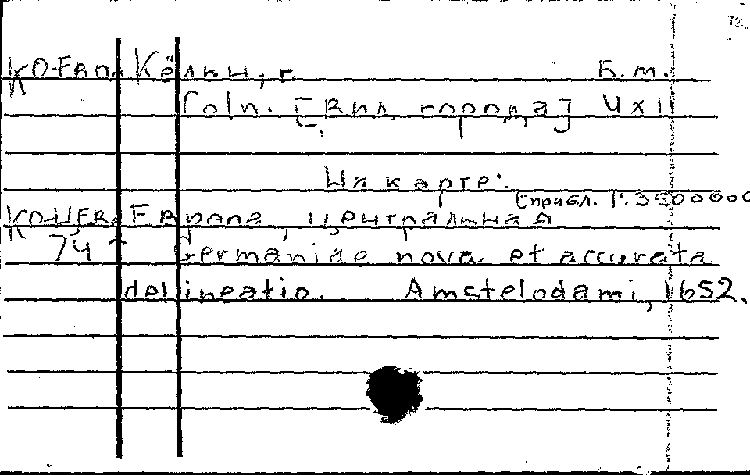 КО-ГЕРМ. Кёльн, г. Б.м.
Coln. [Вид города] 4x11
На карте:
[прибл. 1:3500000
КО-Ц.ЕВР. Европа, центральная
74 Germaniae nova et accurata
delineatio. Amstelodami, 1652.